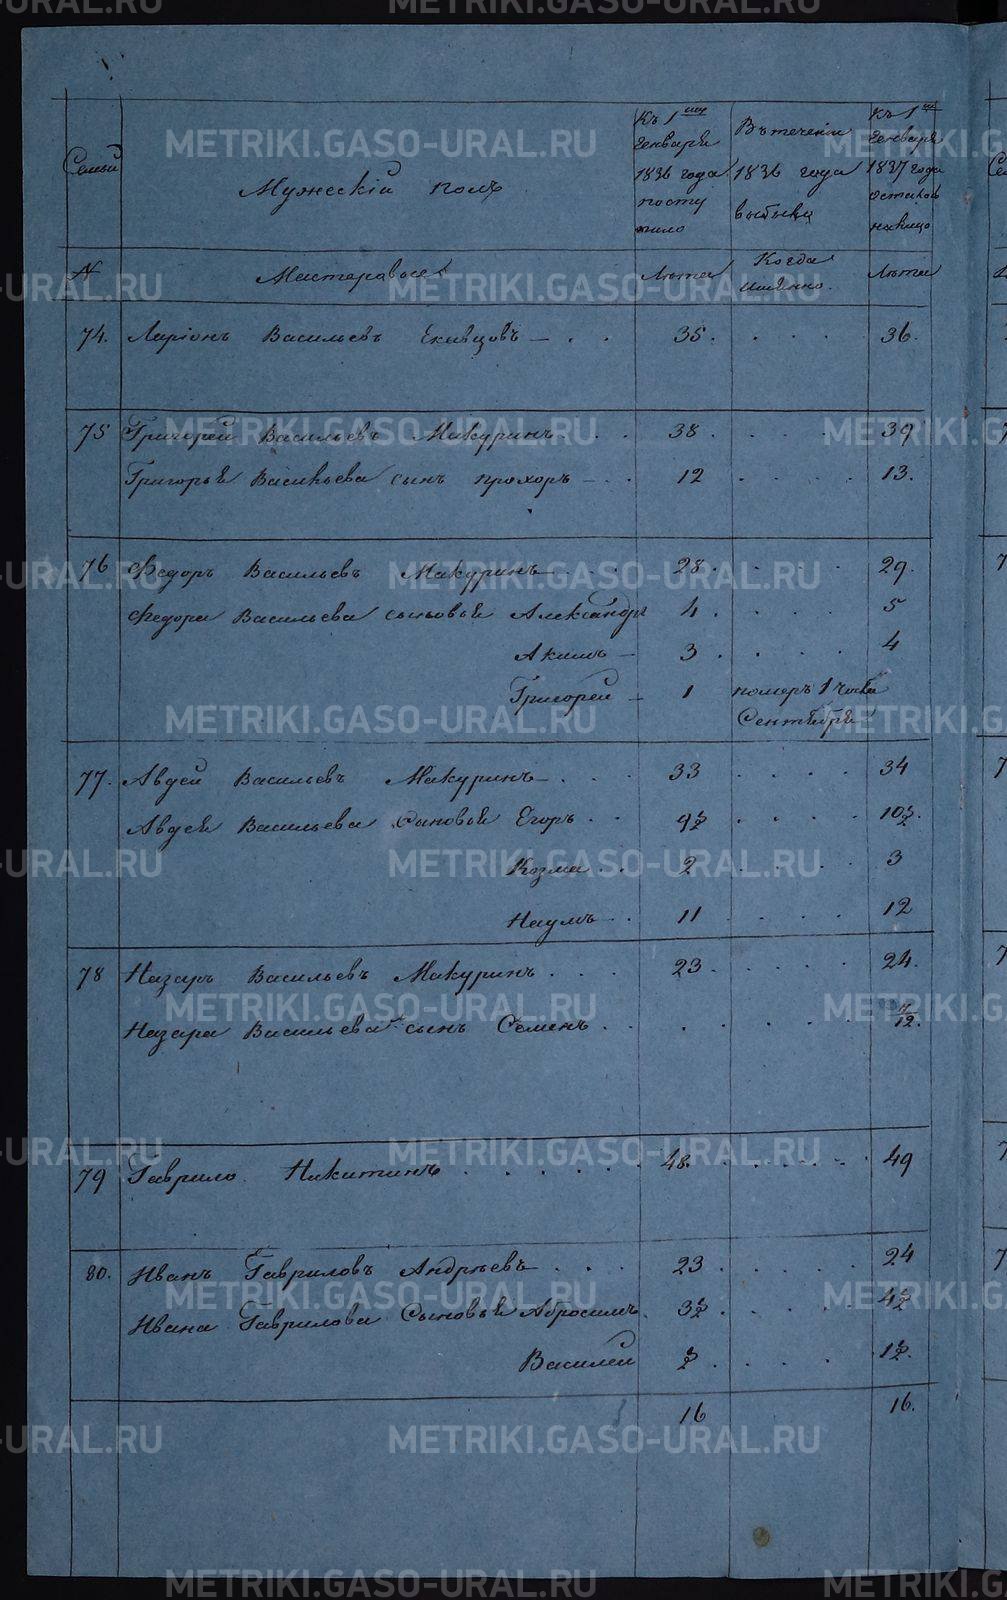 Семьи
Мужескій полъ
Къ 1му Генваря 1836 года поступило
Въ теченіи 1836 года выбыло
Къ 1му Генваря 1837 года остается налицо
№
Мастеровые
Лѣта
Когда именно.
Лѣта
74. Ларіонъ Васильевъ 35 36.
75 Григорей Васильевъ Макуринъ 38 39
Григорья Васильева сынъ прохоръ 12 13.
76 Федоръ Васильевъ Макуринъ 28 29.
Федора Васильева сыновья Александръ 4 5
Акимъ 3 4
Григорей 1 померъ 1 числа Сентября
77. Авдей Васильевъ Макуринъ 33 34
Авдея Васильева Сыновья Егоръ 9½ 10½.
Козма 2 3
Наумъ 11 12
78 Назаръ Васильевъ Макуринъ 23 24.
Назара Васильева сынъ Семенъ
79 Гаврило Никитинъ 48. 49
80. Иванъ Гавриловъ Андрѣевъ 23 24
Ивана Гаврилова Сыновья Абросимъ 3½ 4½
Василей ½ 1½.
16 16.
METRIKI.GASO-URAL.RU